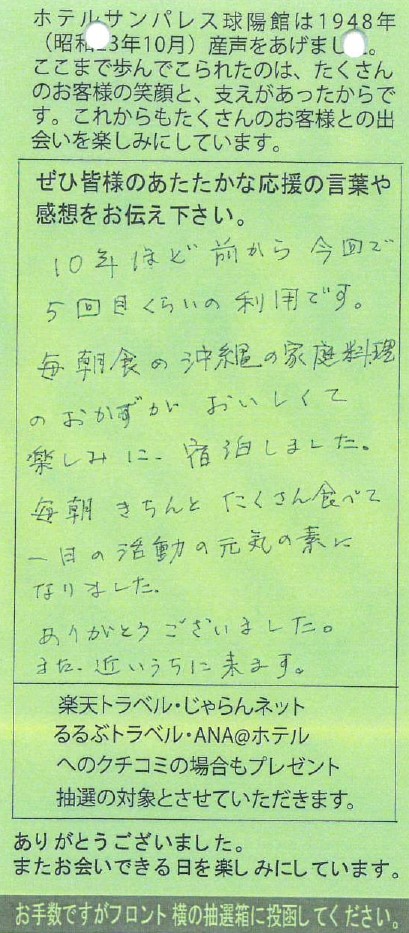 ホテルサンパレス球陽館は1948年
（昭和23年10月）産声をあげました。
ここまで歩んでこられたのは、たくさん
のお客様の笑顔と、支えがあったからで
す。これからもたくさんのお客様との出
会いを楽しみにしています。
ぜひ皆様のあたたかな応援の言葉や
感想をお伝え下さい。
10年ほど前から今回で
5回目くらいの利用です。
毎朝食の沖縄の家庭料理
のおかずがおいしくて
楽しみに宿泊しました。
毎朝きちんとたくさん食べて
一日の活動の元気の素に
なりました。
ありがとうございました。
また、近いうちに来ます。
楽天トラベル・じゃらんネット
るるぶトラベル・ANA@ホテル
へのクチコミの場合もプレゼント
抽選の対象とさせていただきます。
ありがとうございました。
またお会いできる日を楽しみにしています。
お手数ですがフロント横の抽選箱に投函してください。